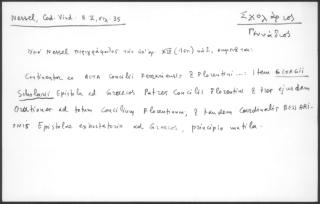 Nessel, Cod. Vind. II
Σχολάριος
Γεννάδιος
Continentur eo Acta Concilii Ferrariensis & Florentini...: Item GEORGII
SCHOLARII Epistola ad Graecos Patres Concilii Florentini & tres ejusdem
Orationes ad totum Concilium Florentinum, & tandem Cardinalis BESSARI-
ONIS Epistolae exhortatoria ad Graecos, principio mutila.